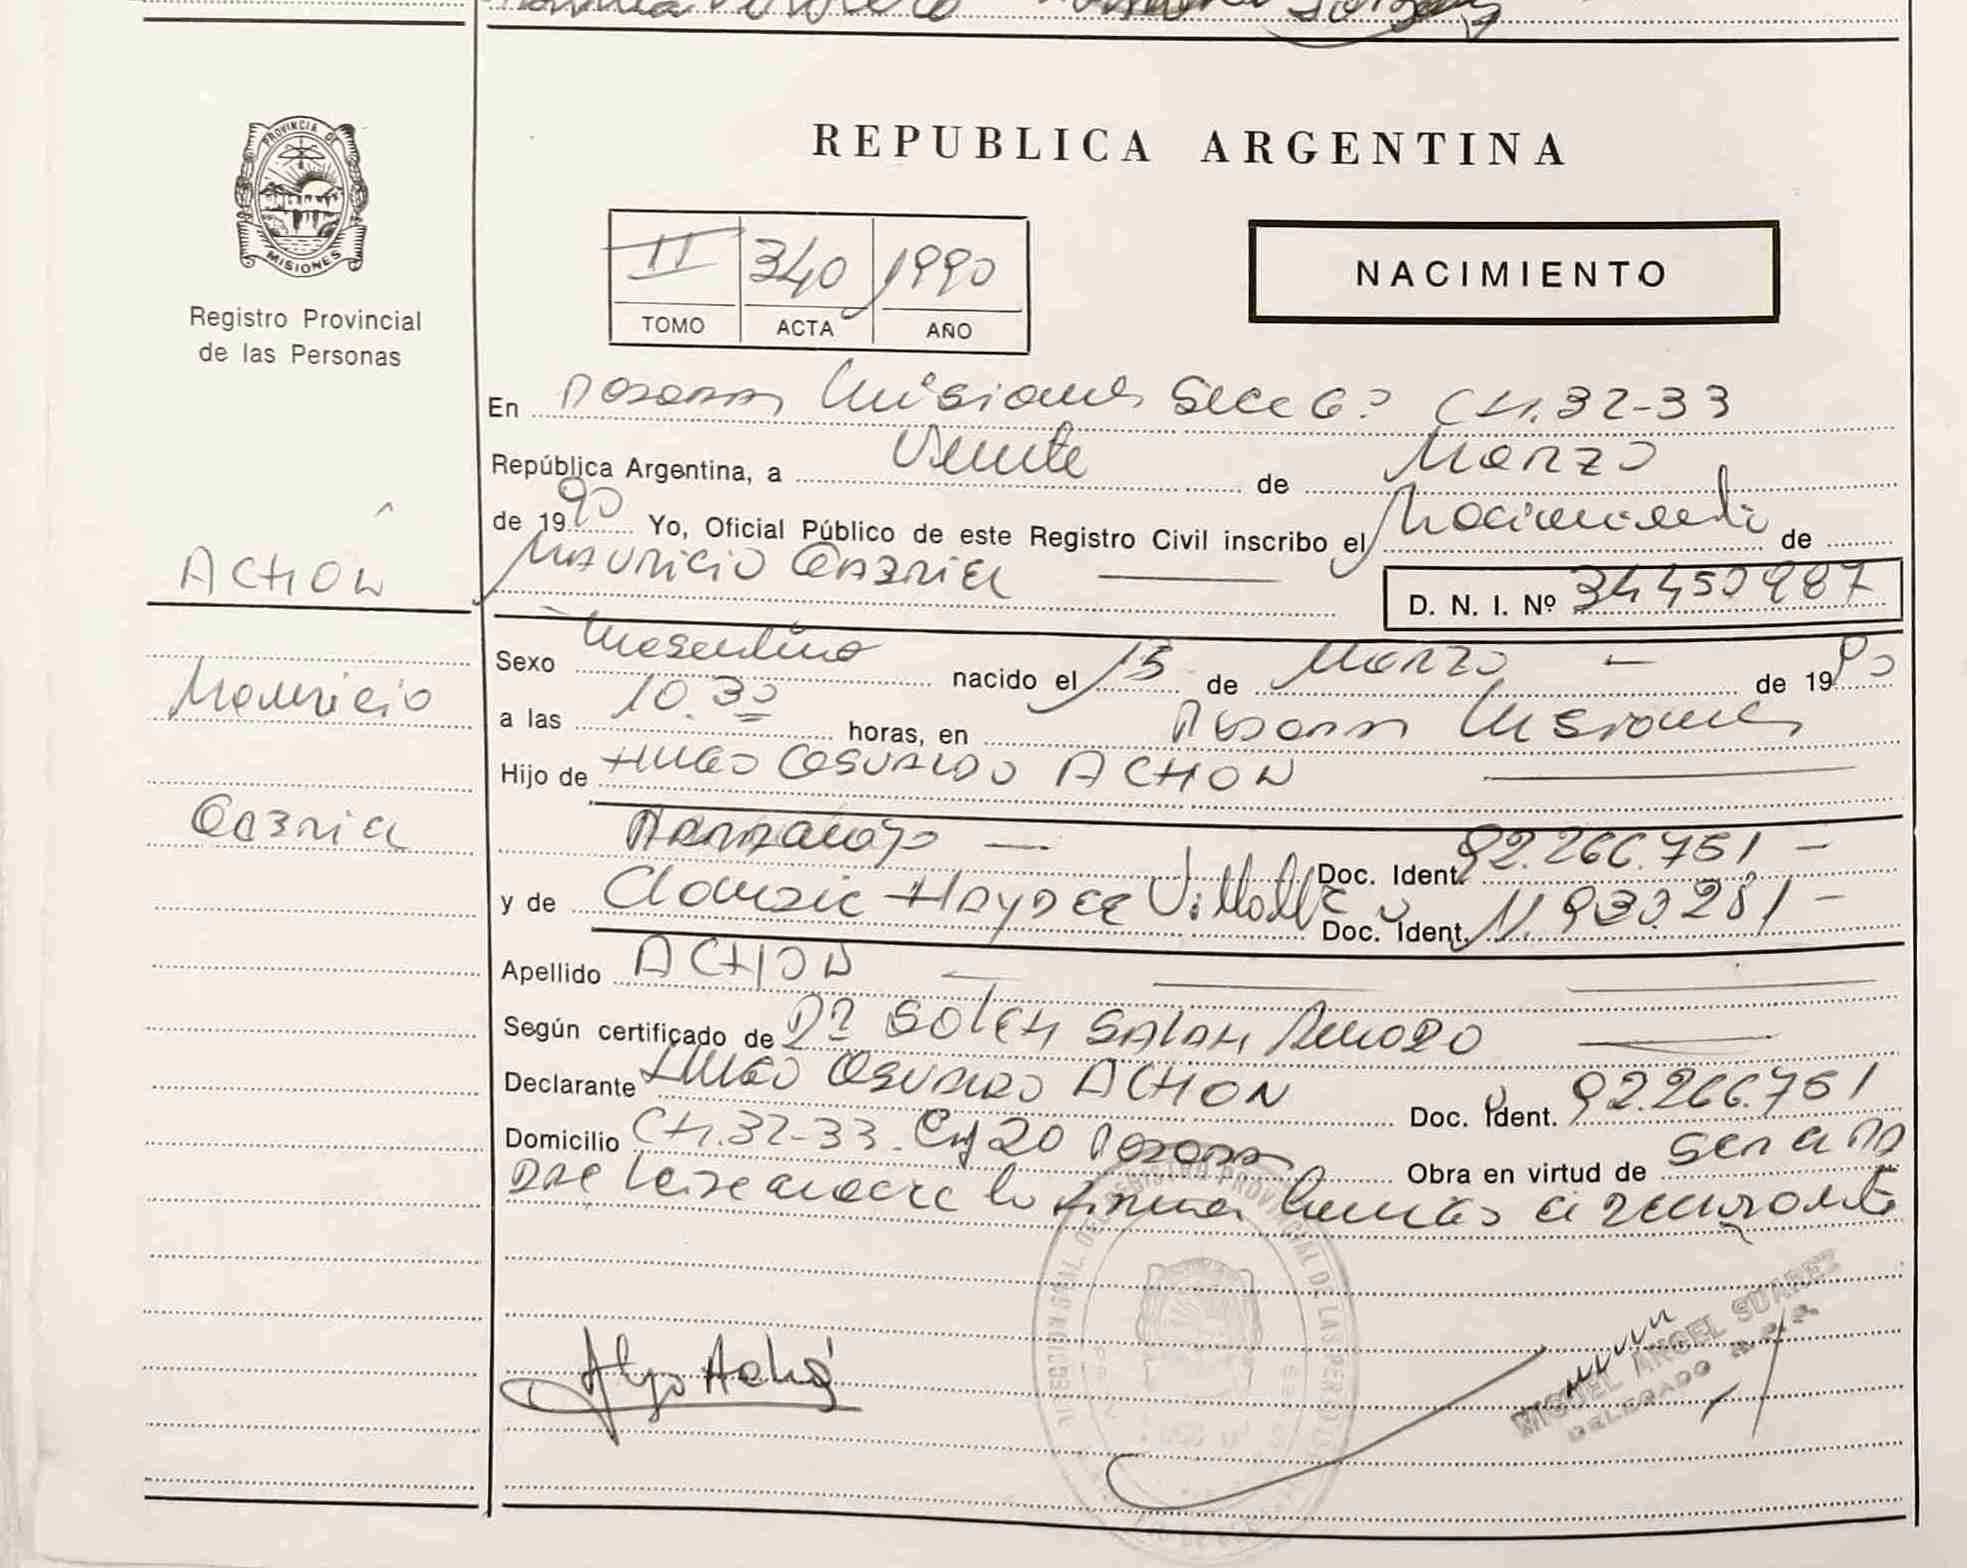 PROVINCIA DE
MISIONES
Registro Provincial
de las Personas
ACHON
Mauricio
Gabriel
REPUBLICA ARGENTINA
II 340 1990
TOMO ACTA AÑO
NACIMIENTO
En Posadas Misiones Secc 6ª CH.32-33
República Argentina, a Veinte de Marzo
de 1990 Yo, Oficial Público de este Registro Civil inscribo el Nacimiento de
MAURICIO GABRIEL
D. N. I. Nº 34450987
Sexo Masculino nacido el 15 de Marzo de 1990
a las 10.30 horas, en Posadas Misiones
Hijo de HUGO OSVALDO ACHON
Paraguayo Doc. Ident. 92.266.751
y de Claudie HAYDEE Villalba Doc. Ident. 11.930.281
Apellido ACHON
Según certificado de Dª SOLEH SALAH
Declarante HUGO OSVALDO ACHON Doc. Ident. 92.266.751
Domicilio CH.32-33. 20 Posadas Obra en virtud de ser el PA
DRE Leida el acta la firma conmigo el declarante
DEL REGISTRO PROVINCIAL DE LAS PERSONAS
MIGUEL ANGEL SUAREZ
DELEGADO